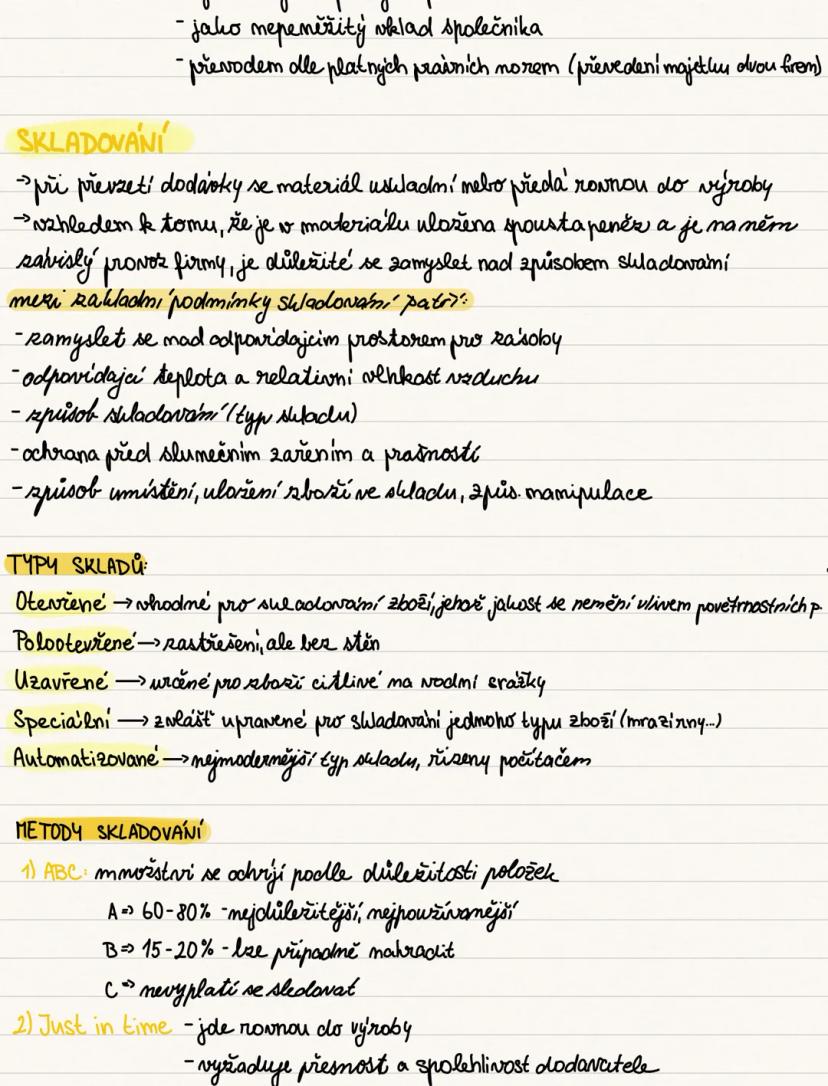 - jako nepeměžitý vklad společnika
- převodem dle platných pravních norem (převedení majetku dvou firem)
SKLADOVÁNÍ
→ při převzetí dodávky se materiál uskladní nebo předá rovnou do výroby
→ vzhledem k tomu, že je v materiálu uložena spousta peněz a je na něm
závislý provoz firmy, je důležité se zamyslet nad způsobem skladování
mezi základní podmínky skladování patří:
- zamyslet se nad odpovídajcím prostorem pro zásoby
- odpovídající teplota a relativní vlhkost vzduchu
- způsob skladování (typ skladu)
- ochrana před slunečním zařením a prašností
- způsob umístění, uložení zboží ve skladu, způs. manipulace
TYPY SKLADŮ:
Otevřené → vhodné pro skladování zboží, jehož jakost se nemění vlivem povětrnostních p.
Polootevřené → zastřešení, ale bez stěn
Uzavřené → určené pro zboží citlivé na vodní srážky
Speciální → zvlášť upravené pro skladování jednoho typu zboží (mrazírny...)
Automatizované → nejmodernější typ skladu, řízeny počítačem
METODY SKLADOVÁNÍ
1) ABC: množství se odvíjí podle důležitosti položek
A ⇒ 60-80% - nejdůležitější, nejpoužívanější
B ⇒ 15-20% - lze případně nahradit
C ⇒ nevyplatí se sledovat
2) Just in time - jde rovnou do výroby
- vyžaduje přesnost a spolehlivost dodavatele